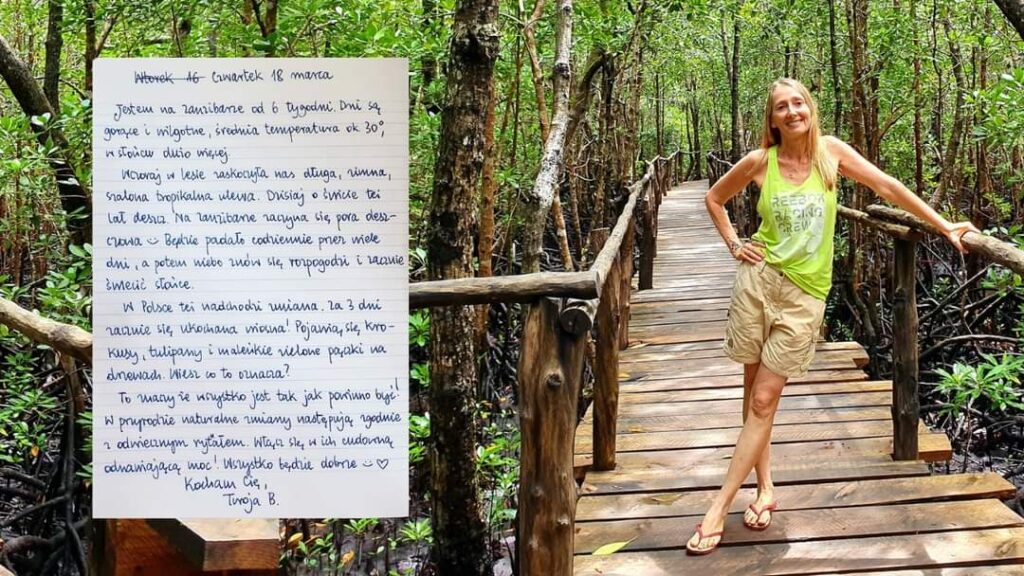 Wtorek 16 czwartek 18 marca
Jestem na Zanzibarze od 6 tygodni. Dni są
gorące i wilgotne, średnia temperatura ok. 30°,
w słońcu dużo więcej.
Wczoraj w lesie zaskoczyła nas długa, zimna,
szalona tropikalna ulewa. Dzisiaj o świcie też
lał deszcz. Na Zanzibarze zaczyna się pora desz-
czowa ☺ Będzie padało codziennie przez wiele
dni, a potem niebo znów się rozpogodzi i zacznie
świecić słońce.
W Polsce też nadchodzi zmiana. Za 3 dni
zacznie się ukochana wiosna! Pojawią się kro-
kusy, tulipany i maleńkie zielone pączki na
drzewach. Wiesz co to oznacza?
To znaczy że wszystko jest tak jak powinno być!
W przyrodzie naturalne zmiany następują zgodnie
z odwiecznym rytmem. Włącz się w ich cudowną
odnawiającą moc! Wszystko będzie dobrze ☺ ♡
Kocham Cię,
Twoja B.
REEBOK
RACING
CREW